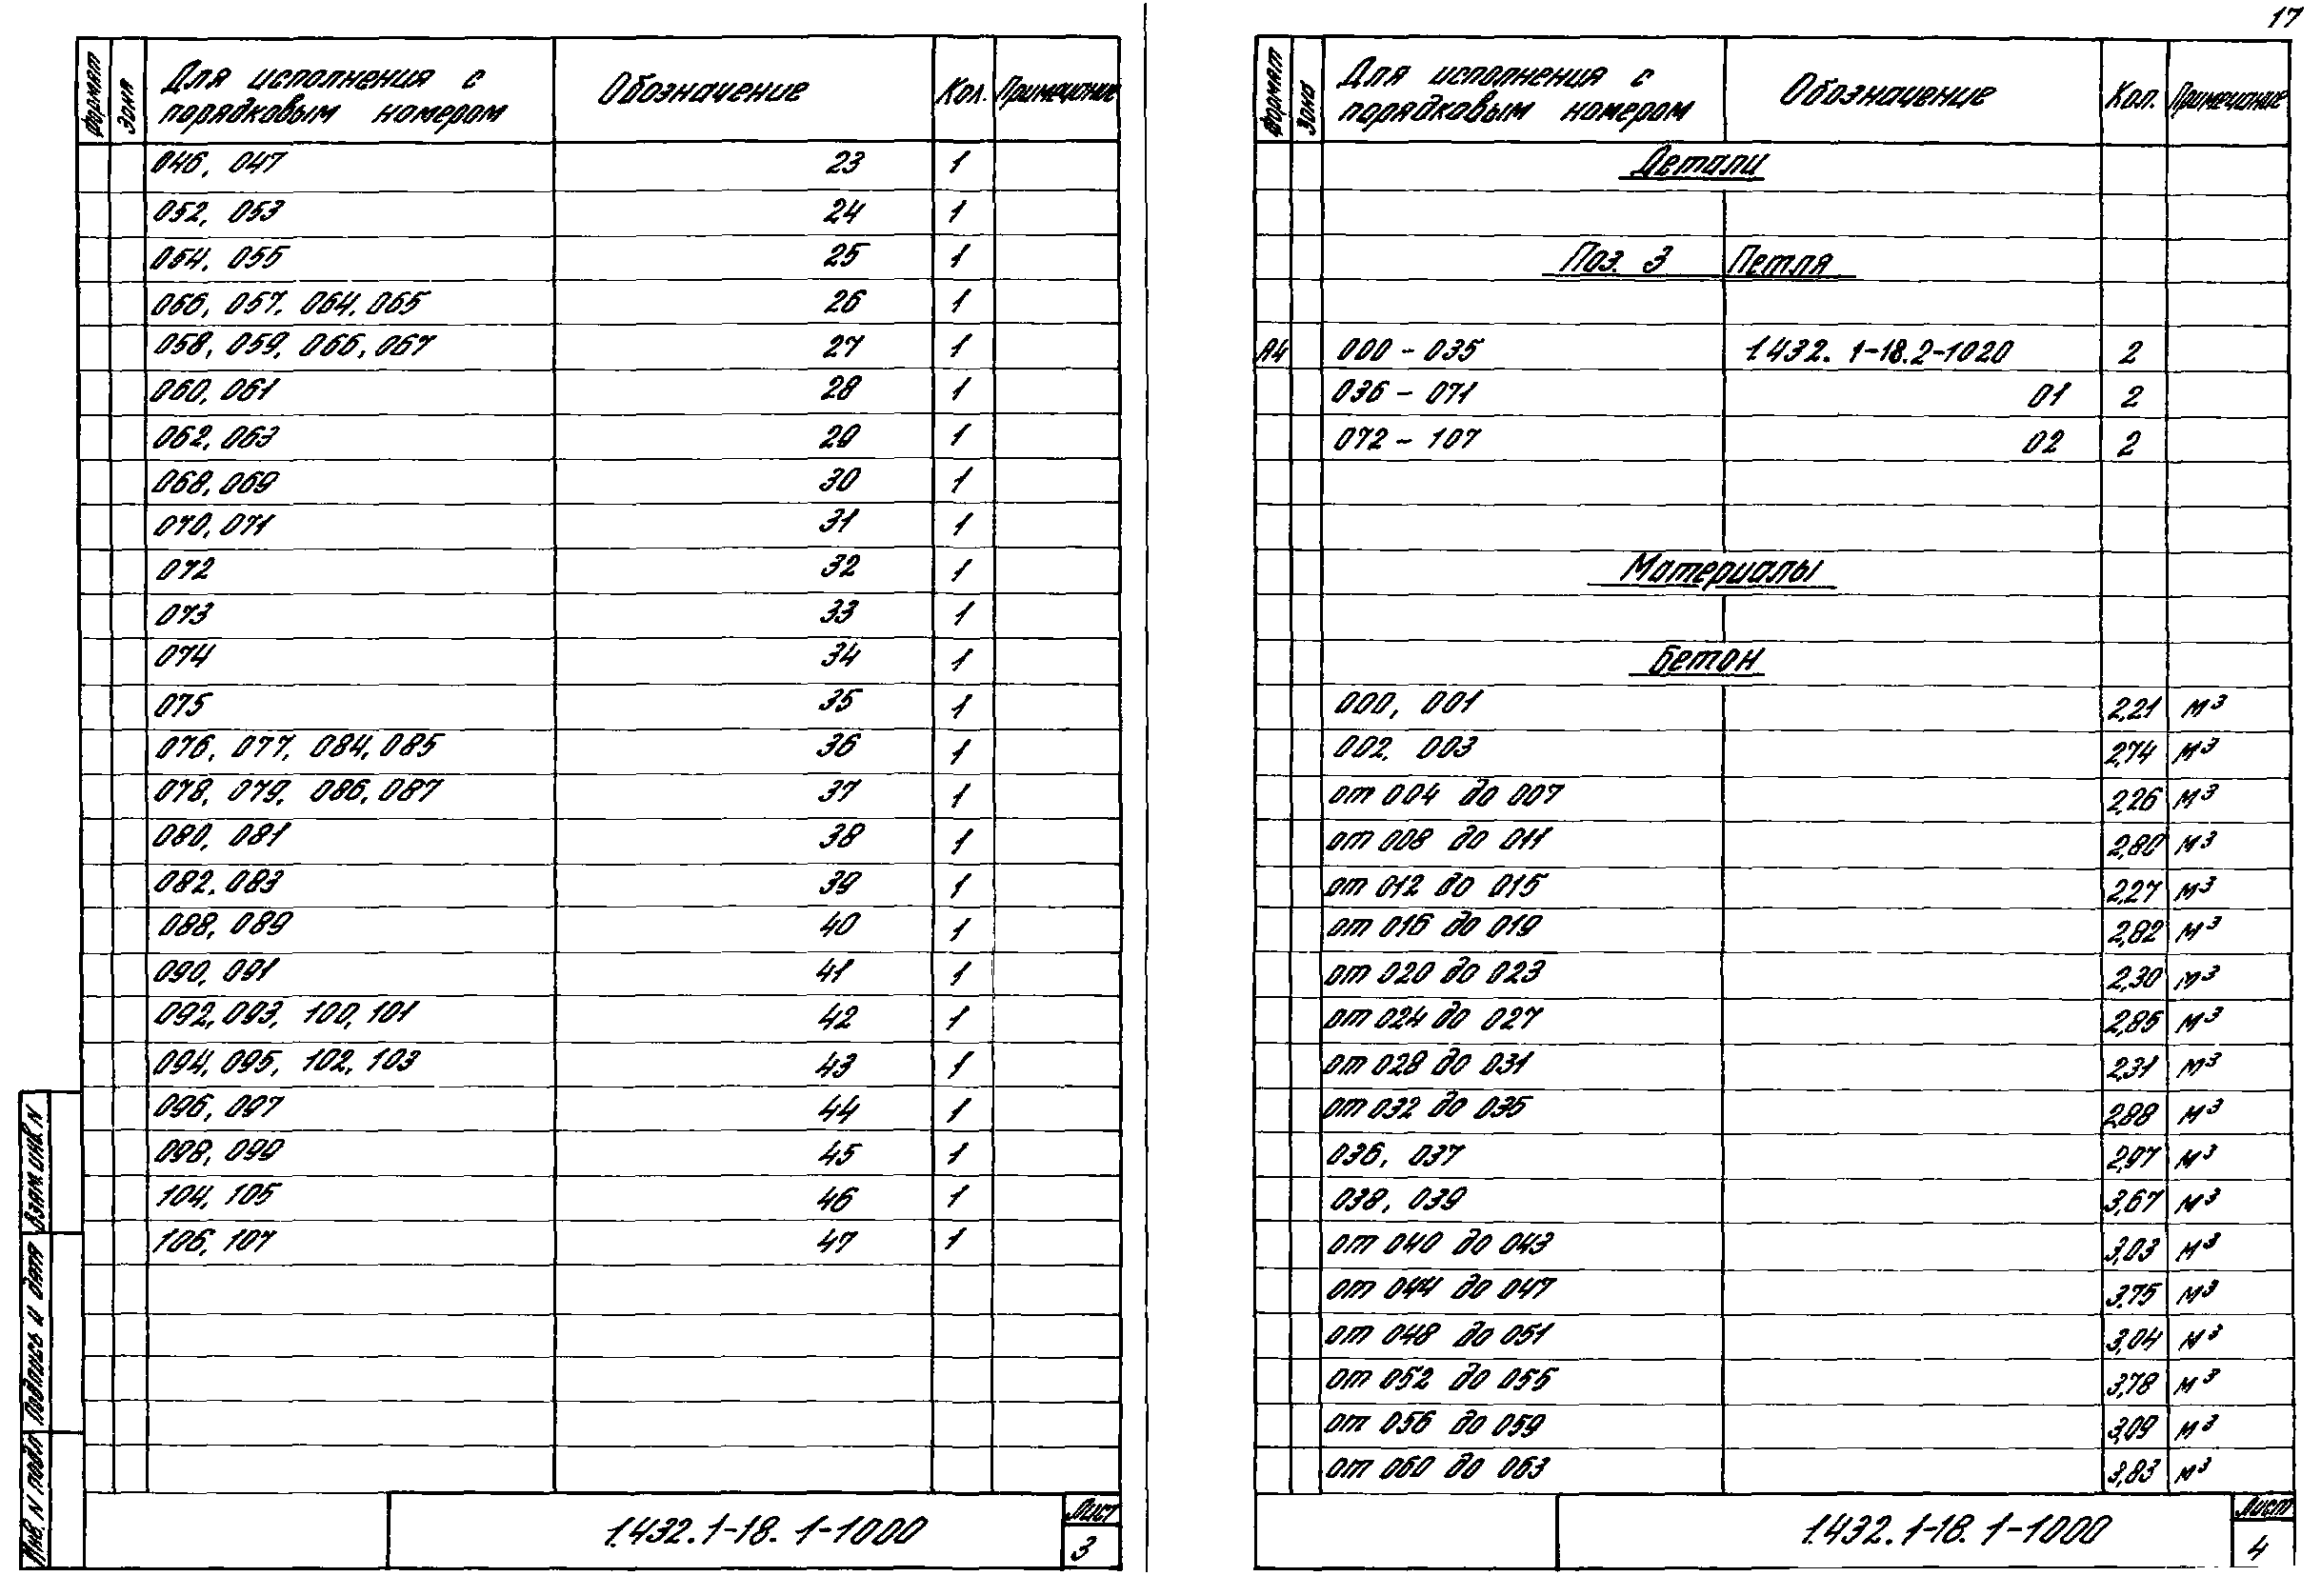 17
Формат
Зона
Для исполнения с
порядковым номером
Обозначение
Кол.
Примечание
046, 047 23 1
052, 053 24 1
054, 055 25 1
056, 057, 064, 065 26 1
058, 059, 066, 067 27 1
060, 061 28 1
062, 063 29 1
068, 069 30 1
070, 071 31 1
072 32 1
073 33 1
074 34 1
075 35 1
076, 077, 084, 085 36 1
078, 079, 086, 087 37 1
080, 081 38 1
082, 083 39 1
088, 089 40 1
090, 091 41 1
092, 093, 100, 101 42 1
094, 095, 102, 103 43 1
096, 097 44 1
098, 099 45 1
104, 105 46 1
106, 107 47 1
Взам. инв. N
Подпись и дата
Инв. N подл
1.432.1-18.1-1000
Лист
3
Формат
Зона
Для исполнения с
порядковым номером
Обозначение
Кол.
Примечание
Детали
Поз. 3 Петля
А4 000 - 035 1.432.1-18.2-1020 2
036 - 071 01 2
072 - 107 02 2
Материалы
Бетон
000, 001 2,21 м³
002, 003 2,74 м³
от 004 до 007 2,26 м³
от 008 до 011 2,80 м³
от 012 до 015 2,27 м³
от 016 до 019 2,82 м³
от 020 до 023 2,30 м³
от 024 до 027 2,85 м³
от 028 до 031 2,31 м³
от 032 до 035 2,88 м³
036, 037 2,97 м³
038, 039 3,67 м³
от 040 до 043 3,03 м³
от 044 до 047 3,75 м³
от 048 до 051 3,04 м³
от 052 до 055 3,78 м³
от 056 до 059 3,09 м³
от 060 до 063 3,83 м³
1.432.1-18.1-1000
Лист
4